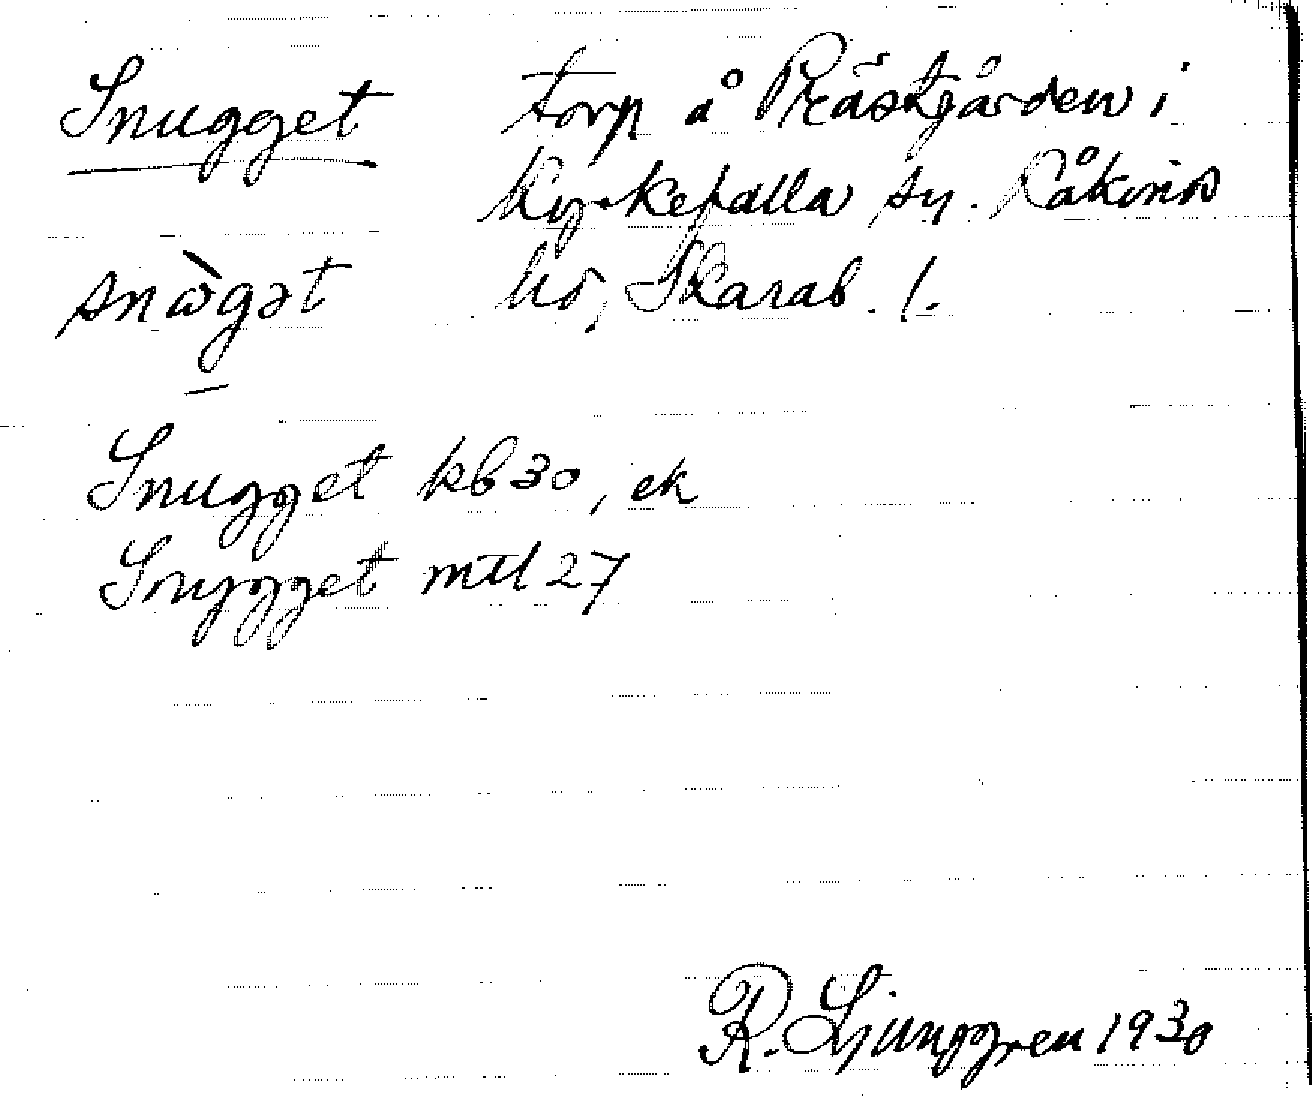 Snugget torp å Prästgården i
Kyrkefalla sn. Kåkinds
snὼgət hd, Skarab. l.
Snugget kb 30, ek
Snygget mtl 27
R. Ljunggren 1930